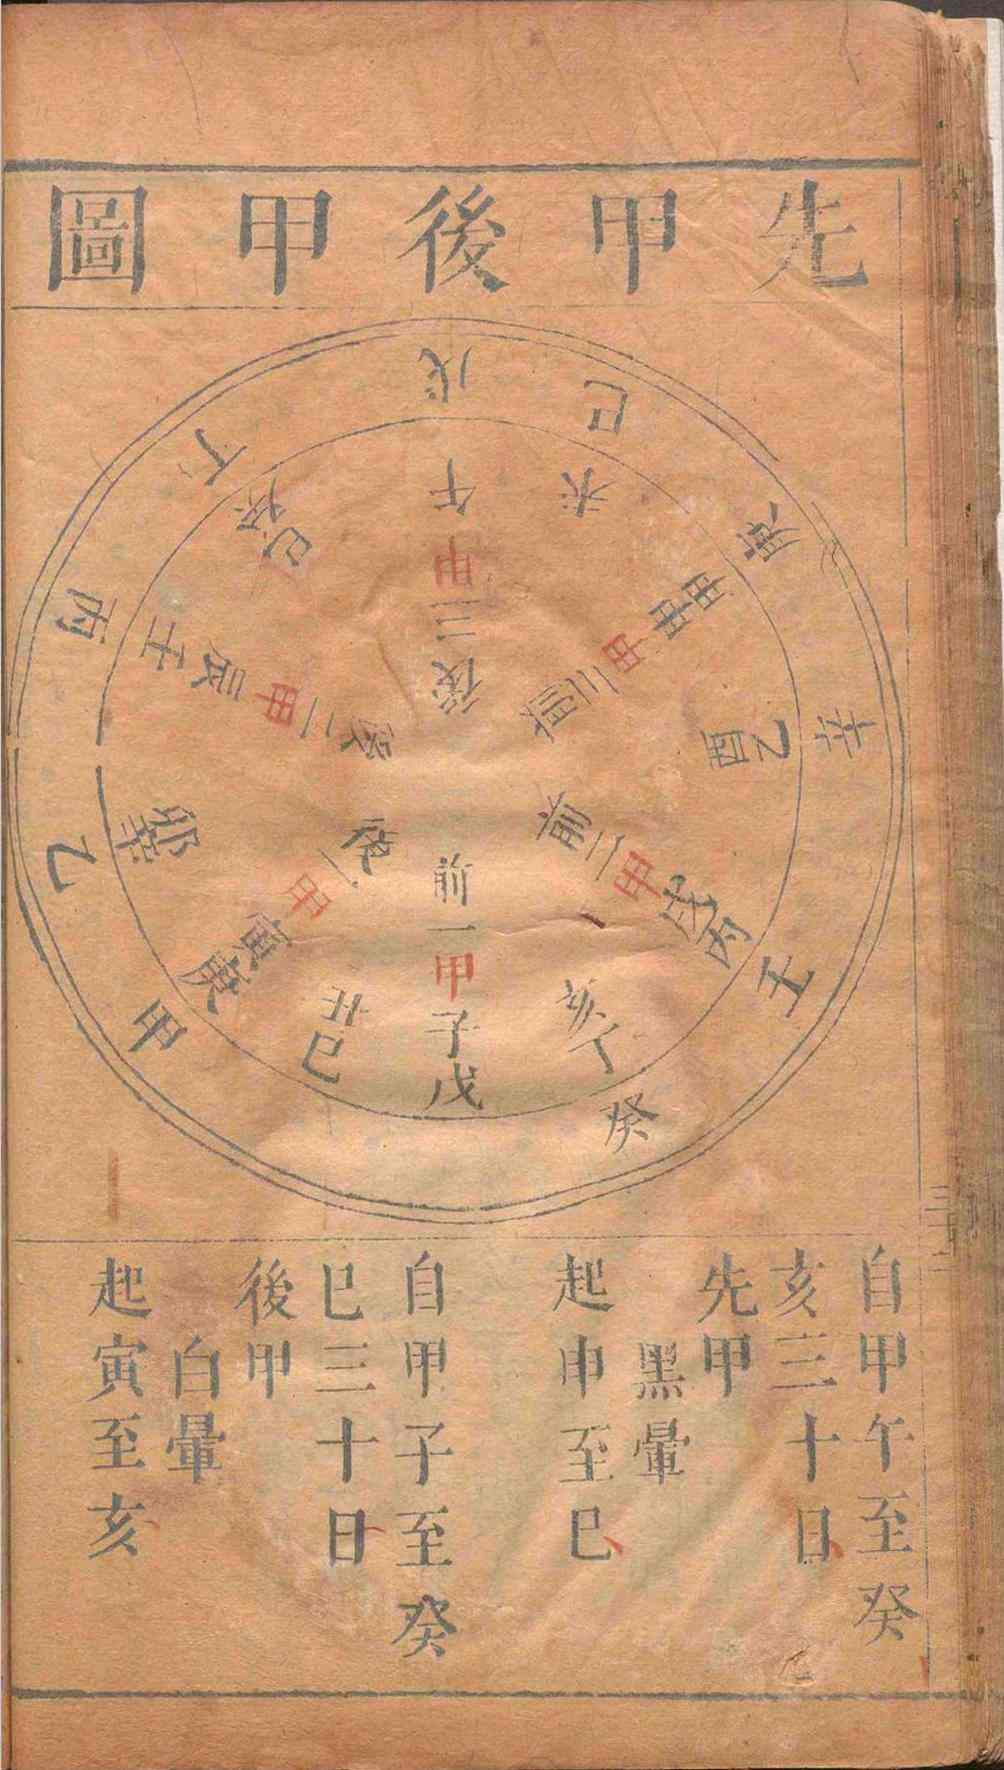 先甲後甲圖
戊
己
庚
辛
壬
癸
甲
乙
丙
丁
午甲三後
未
申甲甲三前
酉乙
前二甲戌丙
亥丁
前一甲子戊
丑己
後一甲寅庚
卯辛
後二甲辰壬
巳癸
自甲午至癸
亥三十日
先甲
黑暈
起申至巳
自甲子至癸
巳三十日
後甲
白暈
起寅至亥